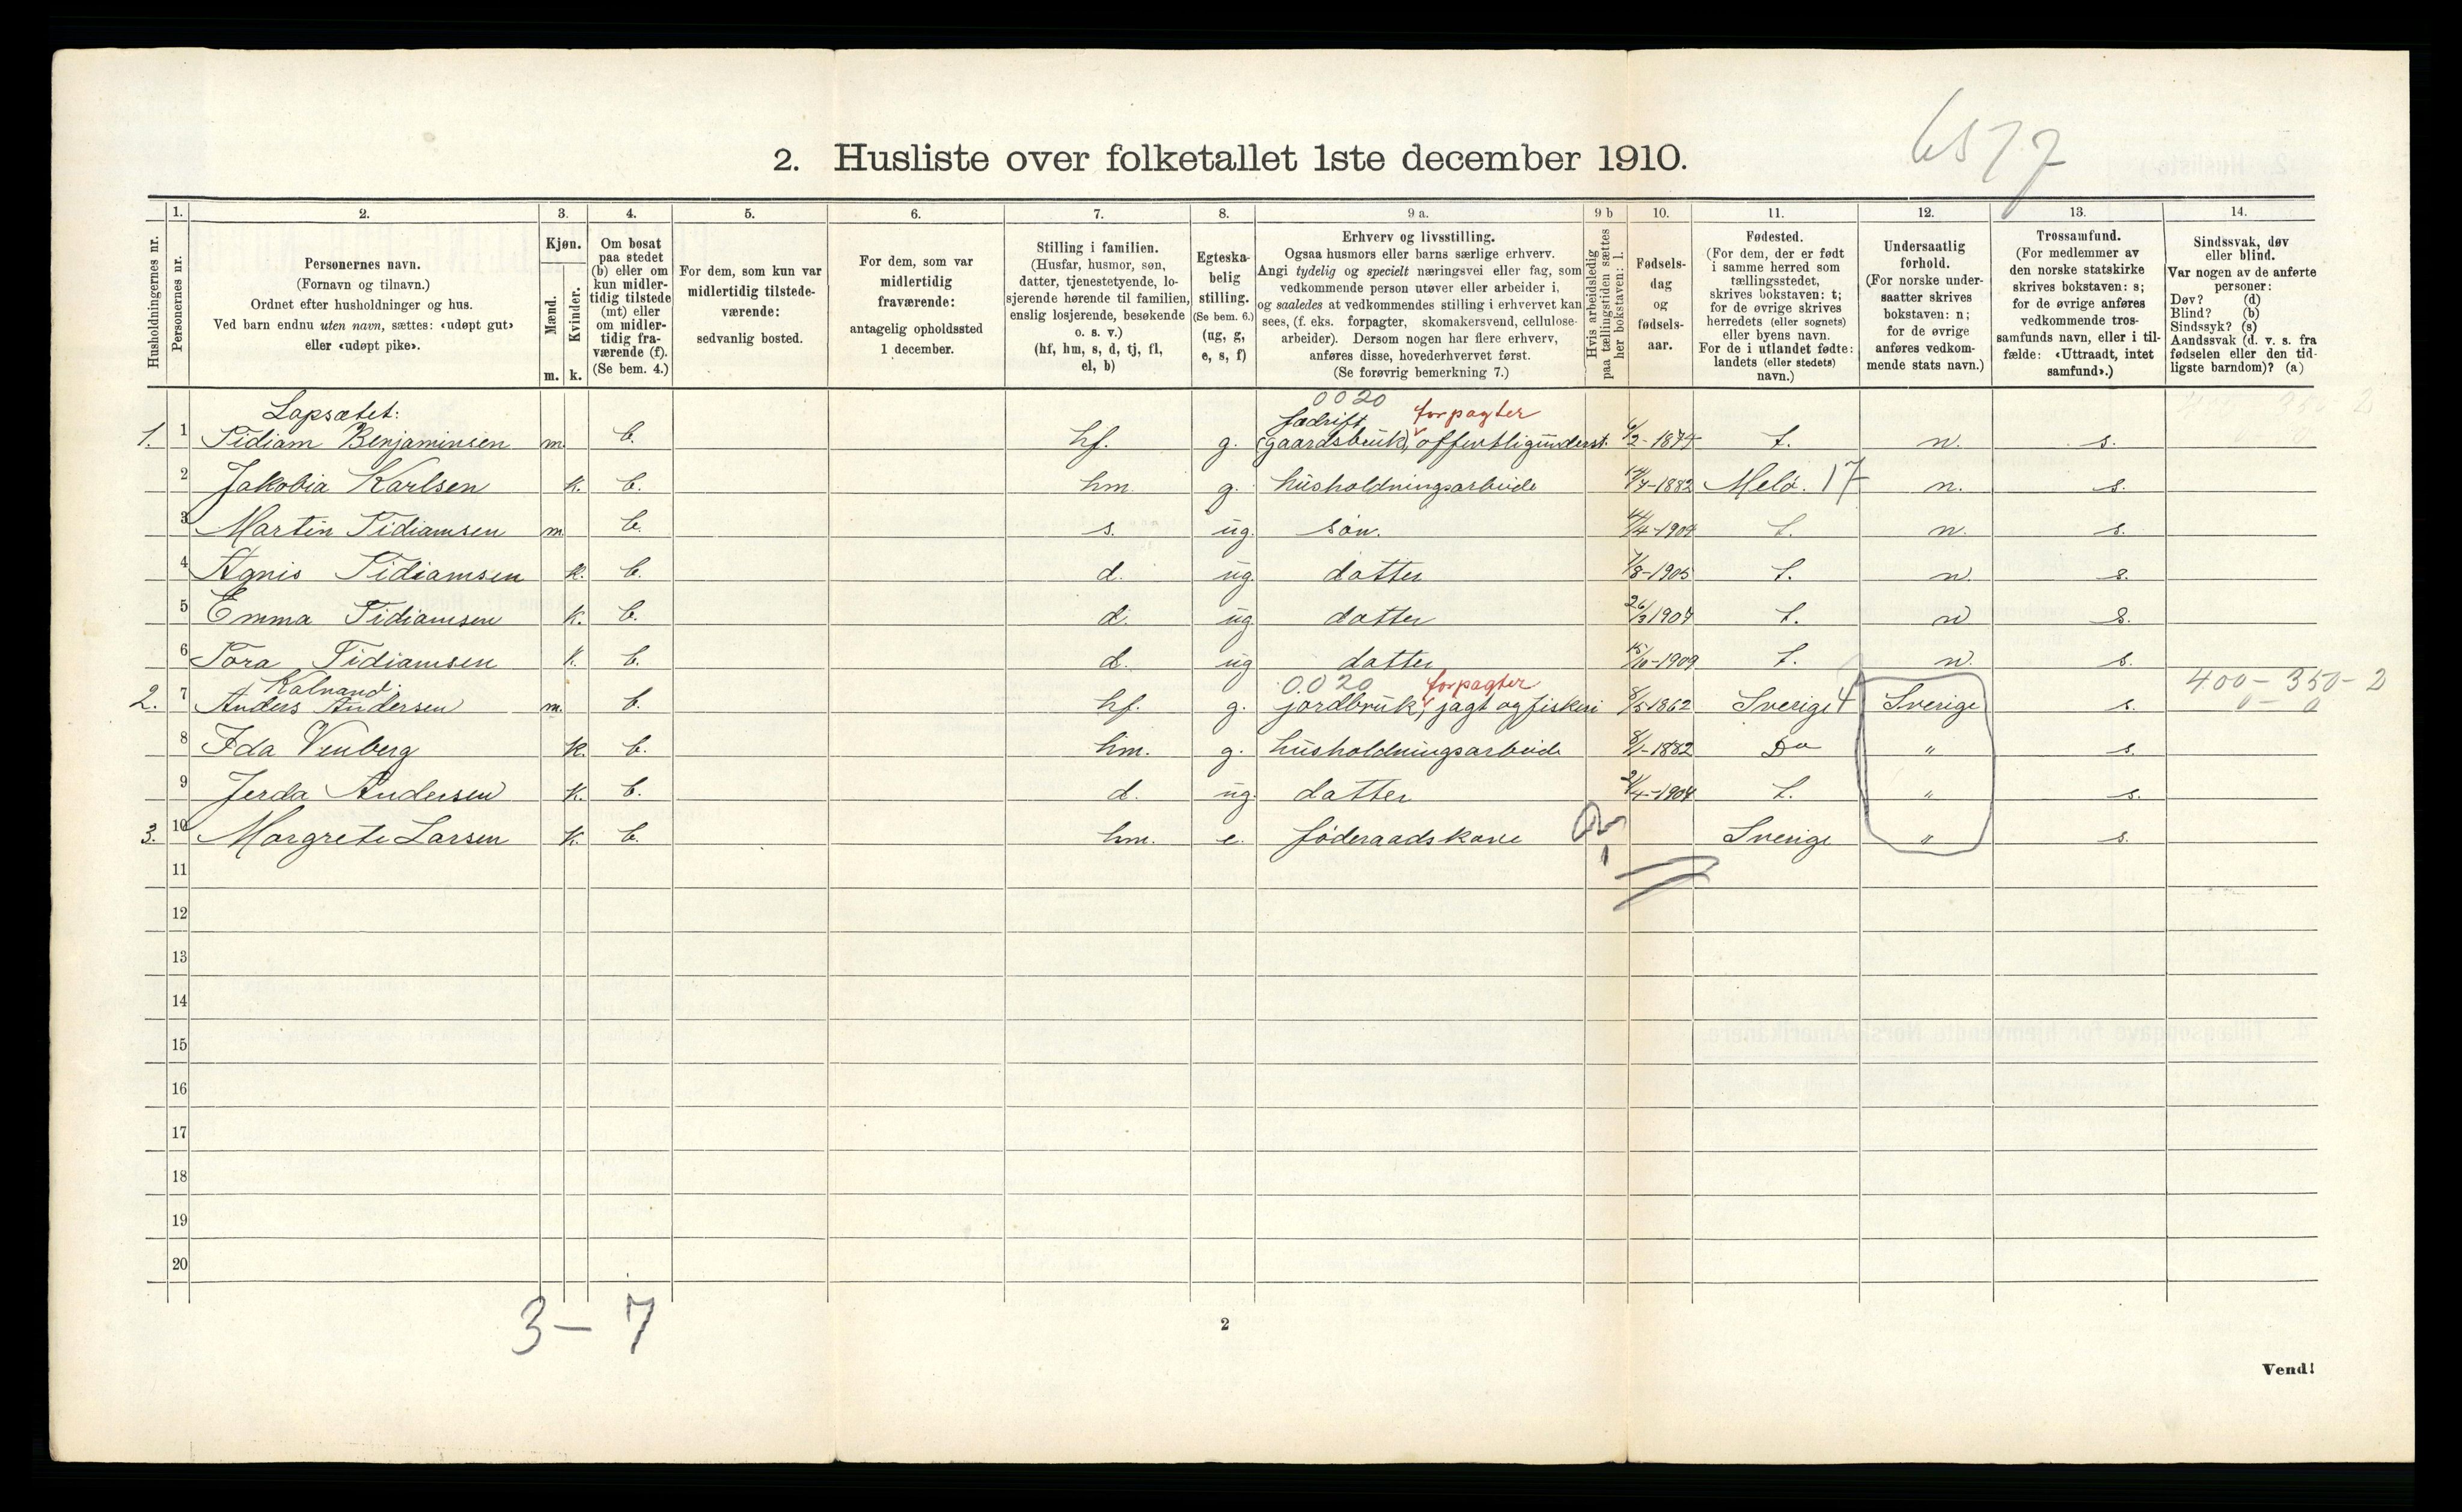 2. Husliste over folketallet 1ste december 1910.
Husholdningernes nr.
1.
Personernes nr.
2.
Personernes navn.
(Fornavn og tilnavn.)
Ordnet efter husholdninger og hus.
Ved barn endnu uten navn, sættes: «udøpt gut»
eller «udøpt pike».
3.
Kjøn.
Mænd.
Kvinder.
m. k.
4.
Om bosat
paa stedet
(b) eller om
kun midler-
tidig tilstede
(mt) eller
om midler-
tidig fra-
værende (f).
(Se bem. 4.)
5.
For dem, som kun var
midlertidig tilstede-
værende:
sedvanlig bosted.
6.
For dem, som var
midlertidig
fraværende:
antagelig opholdssted
1 december.
7.
Stilling i familien.
(Husfar, husmor, søn,
datter, tjenestetyende, lo-
sjerende hørende til familien,
enslig losjerende, besøkende
o. s. v.)
(hf, hm, s, d, tj, fl,
el, b)
8.
Egteska-
belig
stilling.
(Se bem. 6.)
(ug, g,
e, s, f)
9 a.
Erhverv og livsstilling.
Ogsaa husmors eller barns særlige erhverv.
Angi tydelig og specielt næringsvei eller fag, som
vedkommende person utøver eller arbeider i,
og saaledes at vedkommendes stilling i erhvervet kan
sees, (f. eks. forpagter, skomakersvend, cellulose-
arbeider). Dersom nogen har flere erhverv,
anføres disse, hovederhvervet først.
(Se forøvrig bemerkning 7.)
9 b
Hvis arbeidsledig
paa tællingstiden sættes
her bokstaven: l.
10.
Fødsels-
dag
og
fødsels-
aar.
11.
Fødested.
(For dem, der er født
i samme herred som
tællingsstedet,
skrives bokstaven: t;
for de øvrige skrives
herredets (eller sognets)
eller byens navn.
For de i utlandet fødte:
landets (eller stedets)
navn.)
12.
Undersaatlig
forhold.
(For norske under-
saatter skrives
bokstaven: n;
for de øvrige
anføres vedkom-
mende stats navn.)
13.
Trossamfund.
(For medlemmer av
den norske statskirke
skrives bokstaven: s;
for de øvrige anføres
vedkommende tros-
samfunds navn, eller i til-
fælde: «Uttraadt, intet
samfund».)
14.
Sindssvak, døv
eller blind.
Var nogen av de anførte
personer:
Døv? (d)
Blind? (b)
Sindssyk? (s)
Aandssvak (d. v. s. fra
fødselen eller den tid-
ligste barndom)? (a)
Lapsætet: 0020
fædrift forpagter
1. 1 Tidiam Benjaminsen m. b. hf. g. (gaardsbruk), offentligunderst. 6/2-1874 t. n. s.
2 Jakobia Karlsen k. b. hm. g. husholdningsarbeide 14/7-1882 Melö. 17 n. s.
3 Martin Tidiamsen m b. s. ug. søn. t. n. s.
4 Agnis Tidiamsen k. b. d. ug datter 7/8-1905 t. n. s.
5 Emma Tidiamsen k. b. d. ug datter 26/3 1907 t. n s.
6 Tora Tidiamsen k. b. d. ug datter 15/10-1909 t. n. s.
Kalvand. 0.020 forpagter 400-350-2
2. 7 Anders Andersen m. b. hf. g. jordbruk, jagt og fiskeri 8/5-1862 Sverige 4 Sverige s. 0-0
8 Ida Venberg k. b. hm. g. husholdningsarbeide 8/1-1882 Do " s.
9 Jerda Andersen k. b. d. ug. datter t. " s.
3. 10 Margrete Larsen k. b. hm. e. føderaadskone ? Sverige " s.
11
12
13
14
15
16
17
18
19
20
3-7
2
Vend!